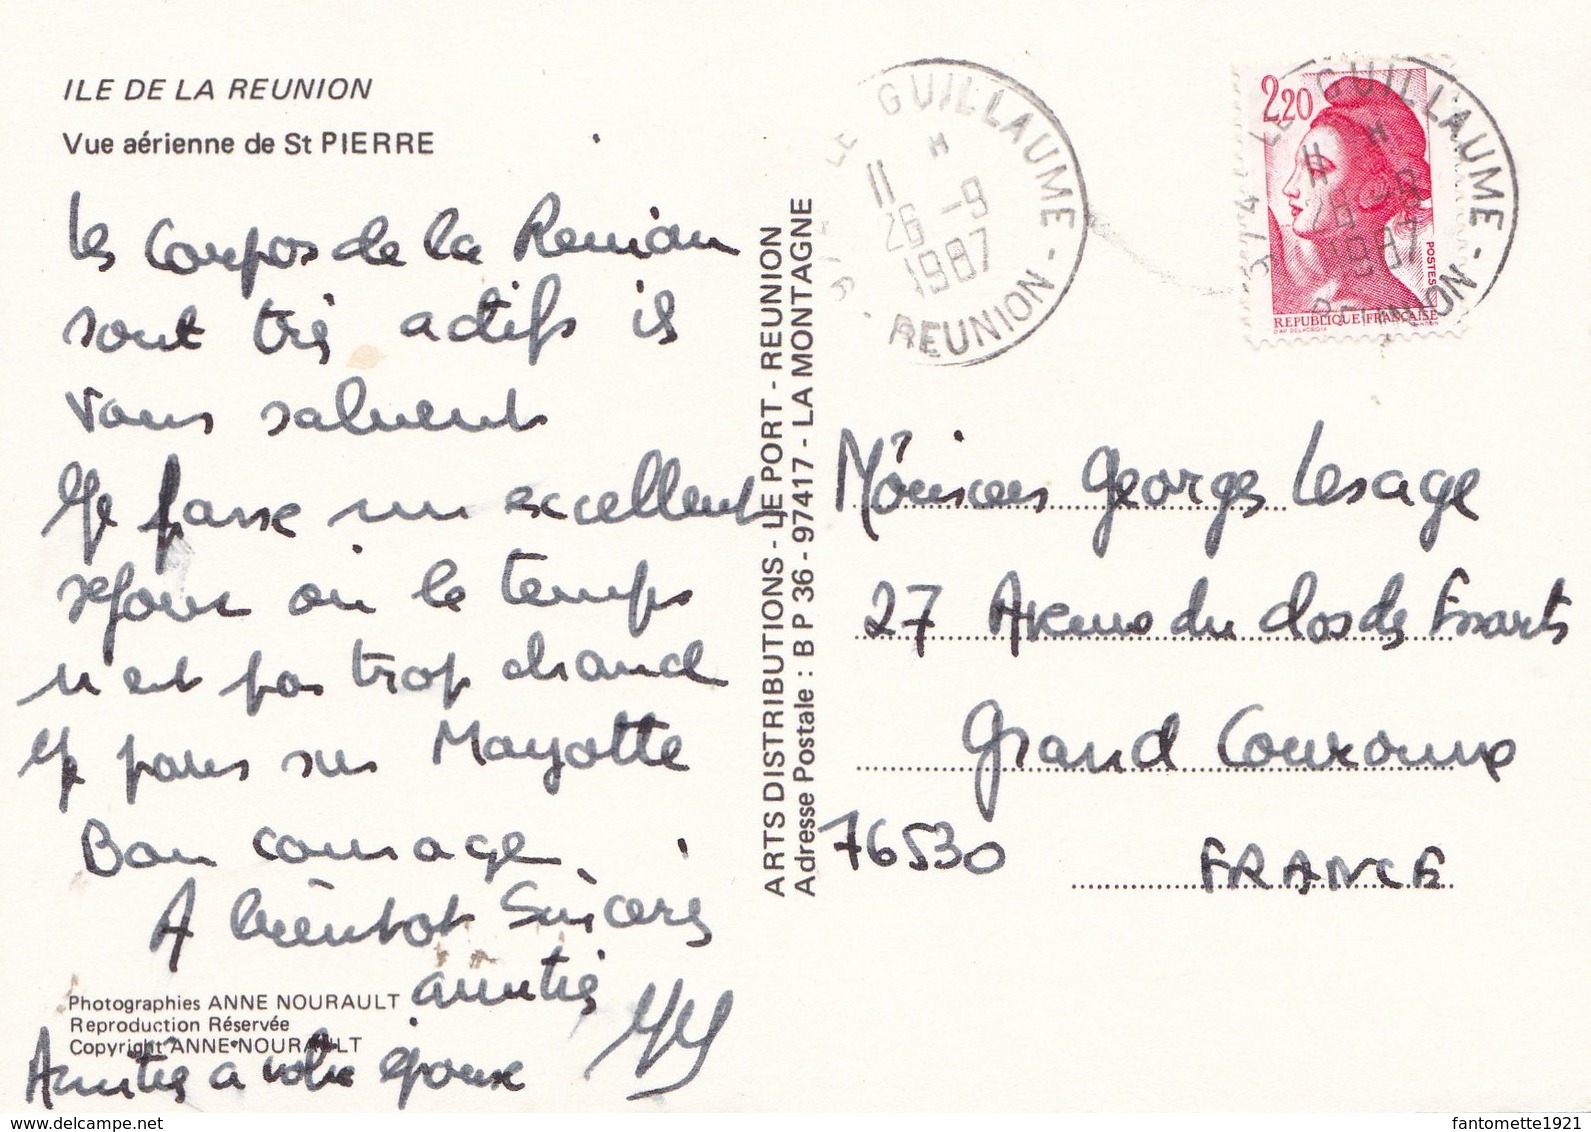 ILE DE LA REUNION
Vue aérienne de St PIERRE
les Coupos de la Reunion
sont très actifs ils
vous saluent
Je passe un excellent
séjour où le temps
n'est pas trop chaud
Je pars sur Mayotte
Bon courage
A bientôt Sincères
amitiés
Photographies ANNE NOURAULT
Reproduction Réservée
Copyright ANNE NOURAULT
Amitiés à votre épouse
ARTS DISTRIBUTIONS - LE PORT - REUNION
Adresse Postale : B P 36 - 97417 - LA MONTAGNE
LE GUILLAUME
11 H
26 -9
1987
REUNION
2,20
POSTES
REPUBLIQUE FRANÇAISE
LE GUILLAUME
11 H
26 -9
1987
REUNION
Monsieur Georges Lesage
27 Avenue du Clos des Essarts
Grand Couronne
76530 FRANCE
delcampe.net
fantomette1921